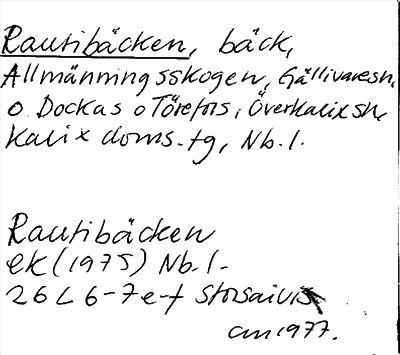 Rautibäcken, bäck,
Allmänningsskogen, Gällivaresn,
o Dockas o Törefors, Överkalix sn,
Kalix doms.tg, Nb.l.
Rautibäcken
ek (1975) Nb.l-
26L 6-7 e-f Storsaivis
am 1977.